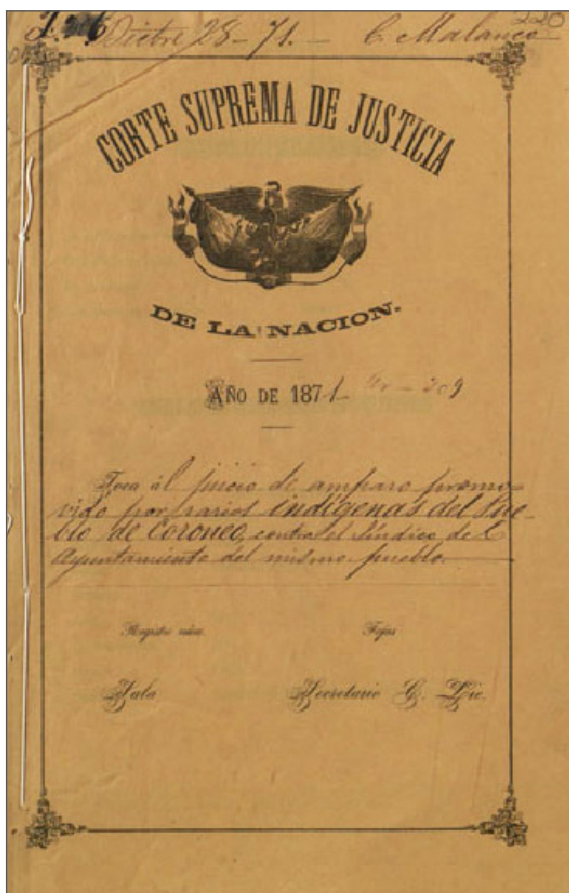 220
Dicbre 28-71.- C. Malanco
CORTE SUPREMA DE JUSTICIA
DE LA NACION.
AÑO DE 1871 - 209
Toca al juicio de amparo promo-
vido por varios indígenas del Pue-
blo de Coroneo, contra el Síndico de
Ayuntamiento del mismo pueblo.
Registro núm. Fojas
Sala Secretario C. Lic.